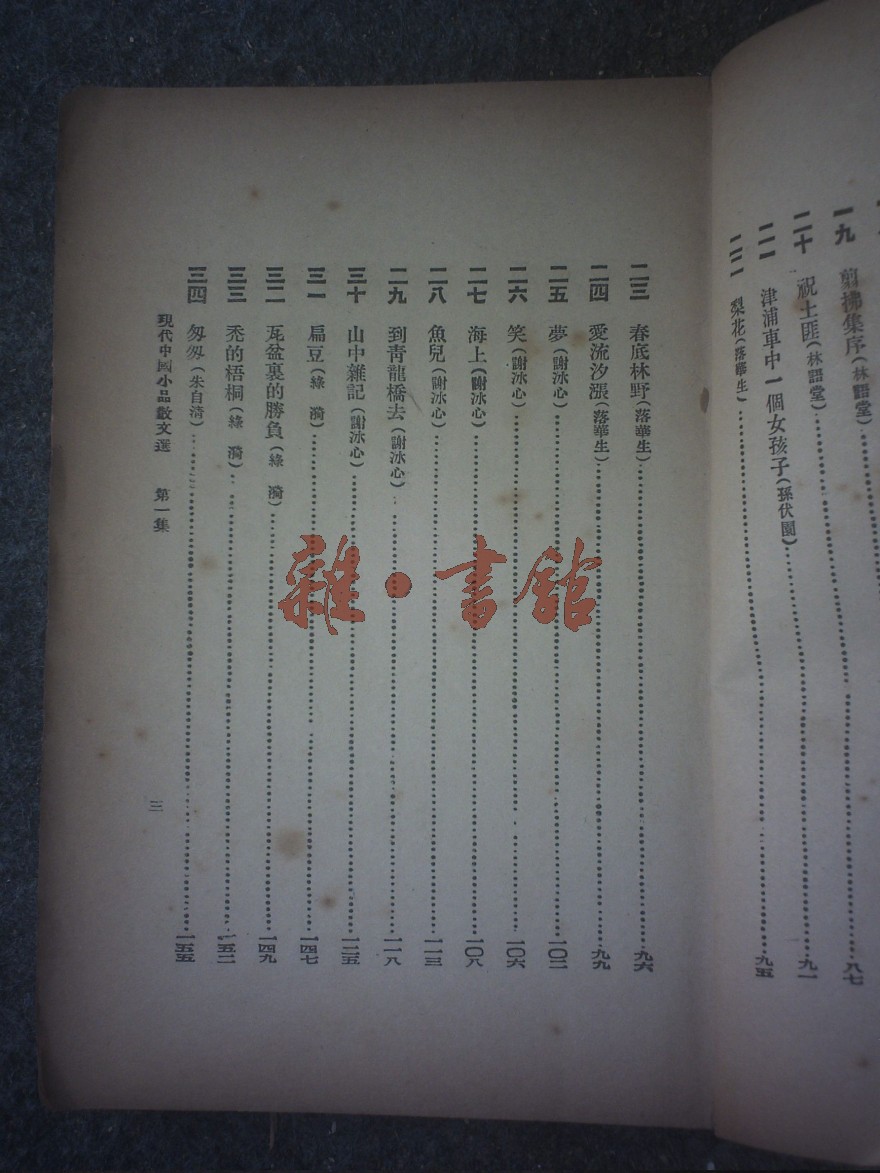 一九　剪拂集序(林語堂)……八七
二十　祝土匪(林語堂)……九一
二一　津浦車中一個女孩子(孫伏園)……
二二　梨花(落華生)……九五
二三　春底林野(落華生)……九六
二四　愛流汐漲(落華生)……九九
二五　夢(謝冰心)……一〇二
二六　笑(謝冰心)……一〇六
二七　海上(謝冰心)……一〇八
二八　魚兒(謝冰心)……一一三
二九　到青龍橋去(謝冰心)……一一八
三十　山中雜記(謝冰心)……一二五
三一　扁豆(綠漪)……一四七
三二　瓦盆裏的勝負(綠漪)……一四九
三三　禿的梧桐(綠漪)……一五二
三四　匆匆(朱自清)……一五五
現代中國小品散文選　第一集　三
雜·書館